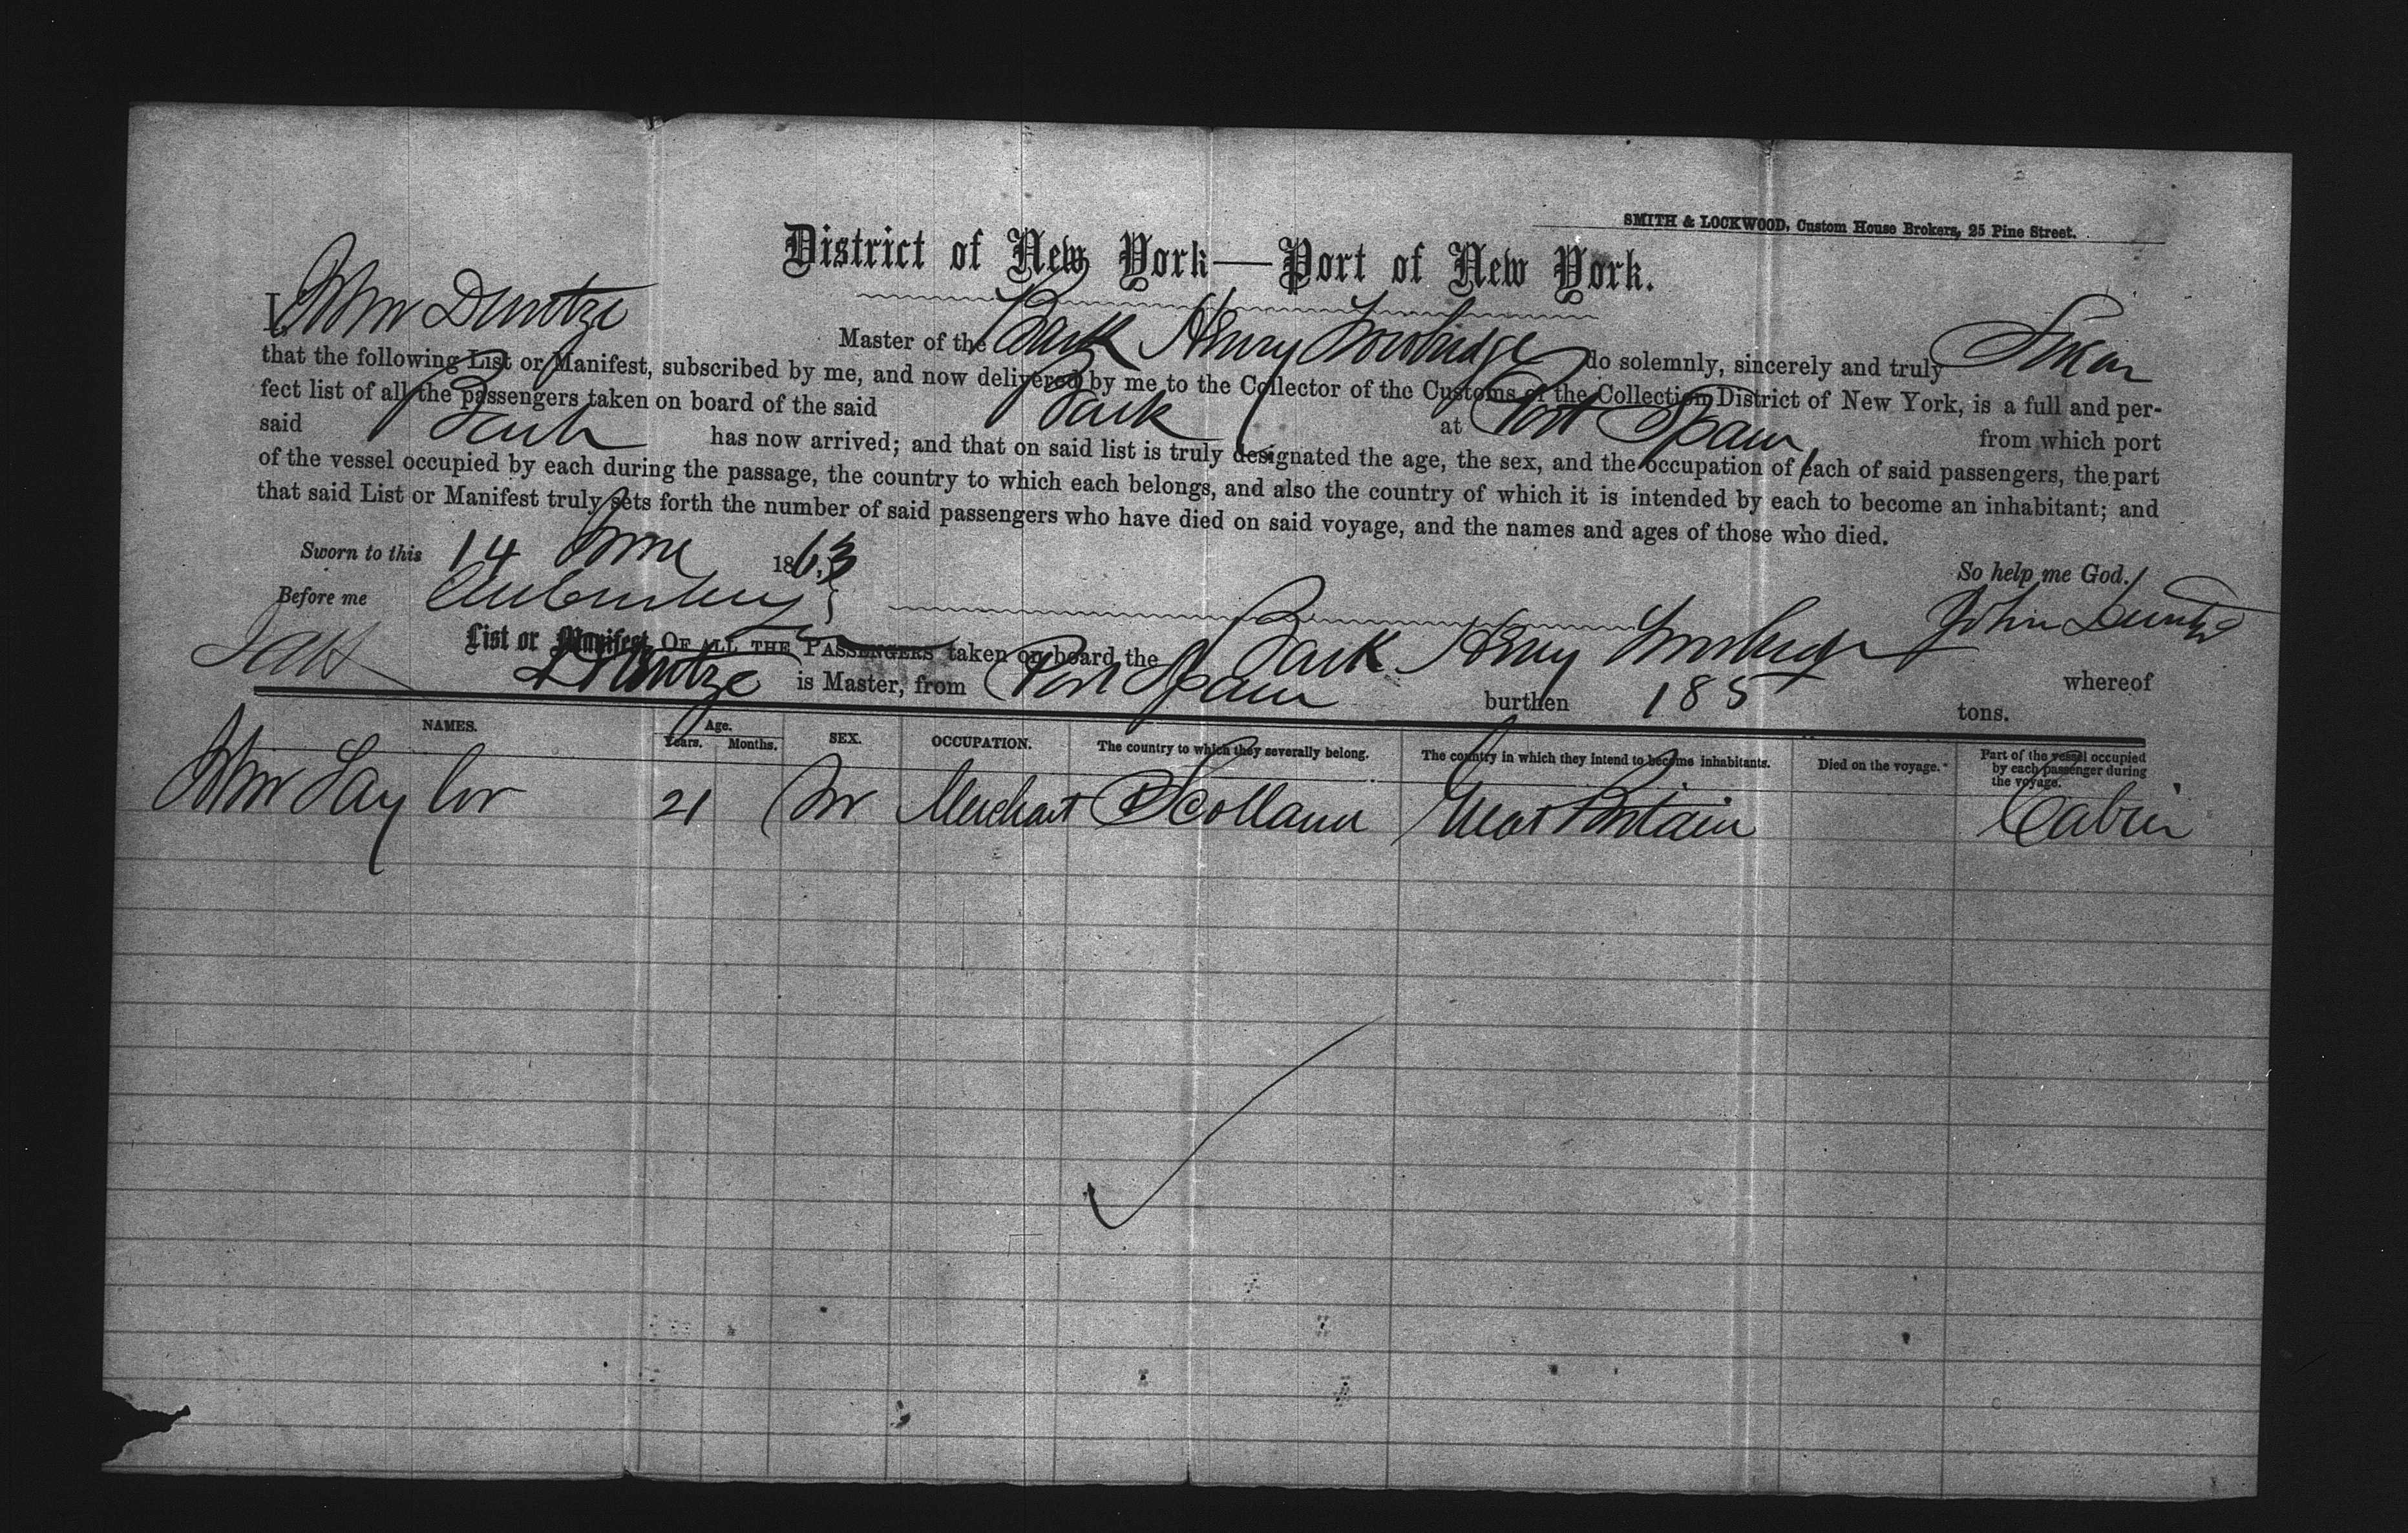 SMITH & LOCKWOOD, Custom House Brokers, 25 Pine Street.
District of New York—Port of New York.
I, John Deuntze Master of the Bark Henry Trowbridge do solemnly, sincerely and truly Swear
that the following List or Manifest, subscribed by me, and now delivered by me to the Collector of the Customs of the Collection District of New York, is a full and per-
fect list of all the passengers taken on board of the said Bark at Port Spain from which port
said Bark has now arrived; and that on said list is truly designated the age, the sex, and the occupation of each of said passengers, the part
of the vessel occupied by each during the passage, the country to which each belongs, and also the country of which it is intended by each to become an inhabitant; and
that said List or Manifest truly sets forth the number of said passengers who have died on said voyage, and the names and ages of those who died.
Sworn to this 14 June 1863
So help me God.
Before me
John Deuntze
List or Manifest OF ALL THE PASSENGERS taken on board the Bark Henry Trowbridge whereof
Deuntze is Master, from Port Spain burthen 185 tons.
NAMES. Age. Years. Months. SEX. OCCUPATION. The country to which they severally belong. The country in which they intend to become inhabitants. Died on the voyage. Part of the vessel occupied by each passenger during the voyage.
Wm Taylor 21 M Merchant Scotland Great Britain Cabin